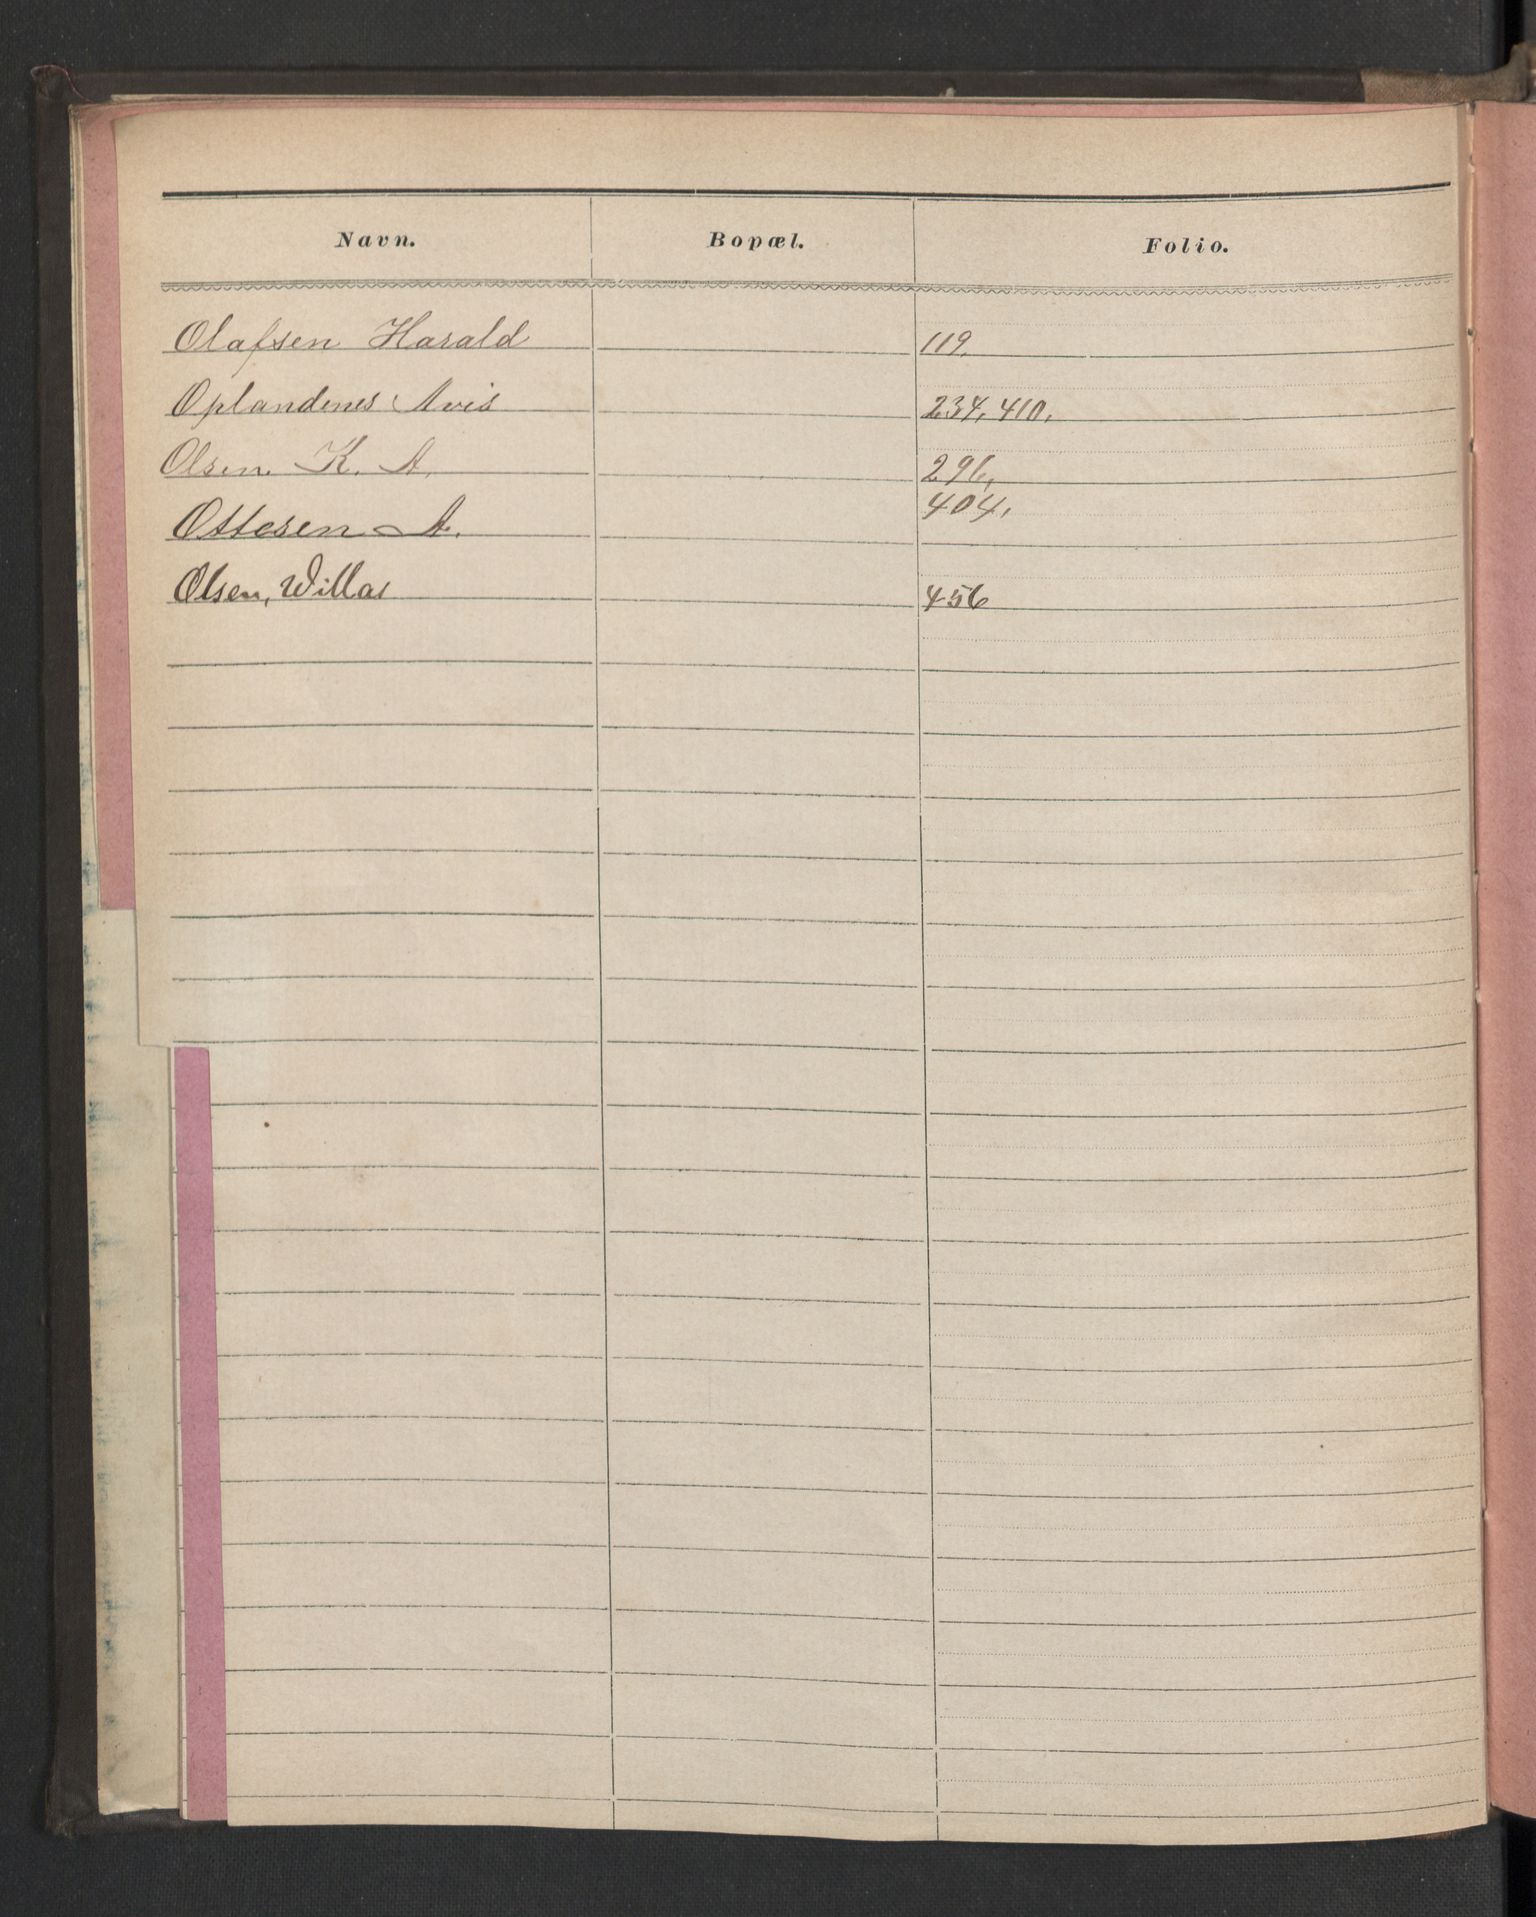 Navn. Bopæl. Folio.
Olafsen Harald 119.
Oplandenes Avis 234, 410,
Olsen K. A. 296,
Ottesen A. 404,
Olsen, Willas 456